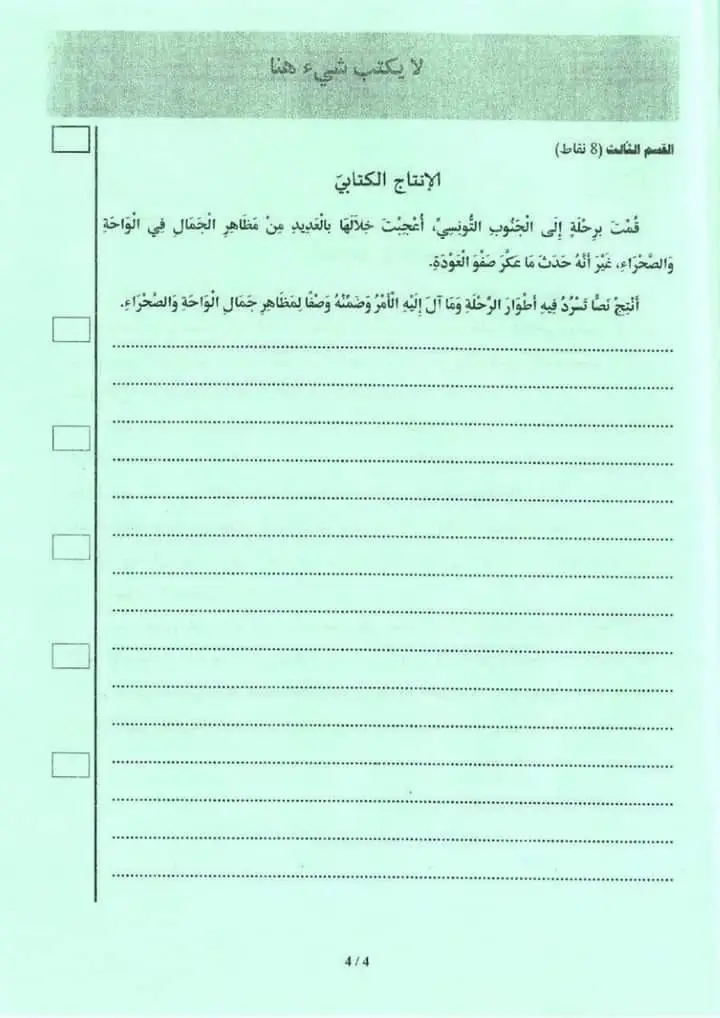 لا يكتب شيء هنا
القسم الثالث (8 نقاط)
الإنتاج الكتابيّ
قُمْتَ بِرِحْلَةٍ إِلَى الْجَنُوبِ التُّونِسِيِّ، أُعْجِبْتَ خِلَالَهَا بِالْعَدِيدِ مِنْ مَظَاهِرِ الْجَمَالِ فِي الْوَاحَةِ
وَالصَّحْرَاءِ، غَيْرَ أَنَّهُ حَدَثَ مَا عَكَّرَ صَفْوَ الْعَوْدَةِ.
أَنْتِجْ نَصًّا تَسْرُدُ فِيهِ أَطْوَارَ الرِّحْلَةِ وَمَا آلَ إِلَيْهِ الْأَمْرُ وَضَمِّنْهُ وَصْفًا لِمَظَاهِرِ جَمَالِ الْوَاحَةِ وَالصَّحْرَاءِ.
4 / 4